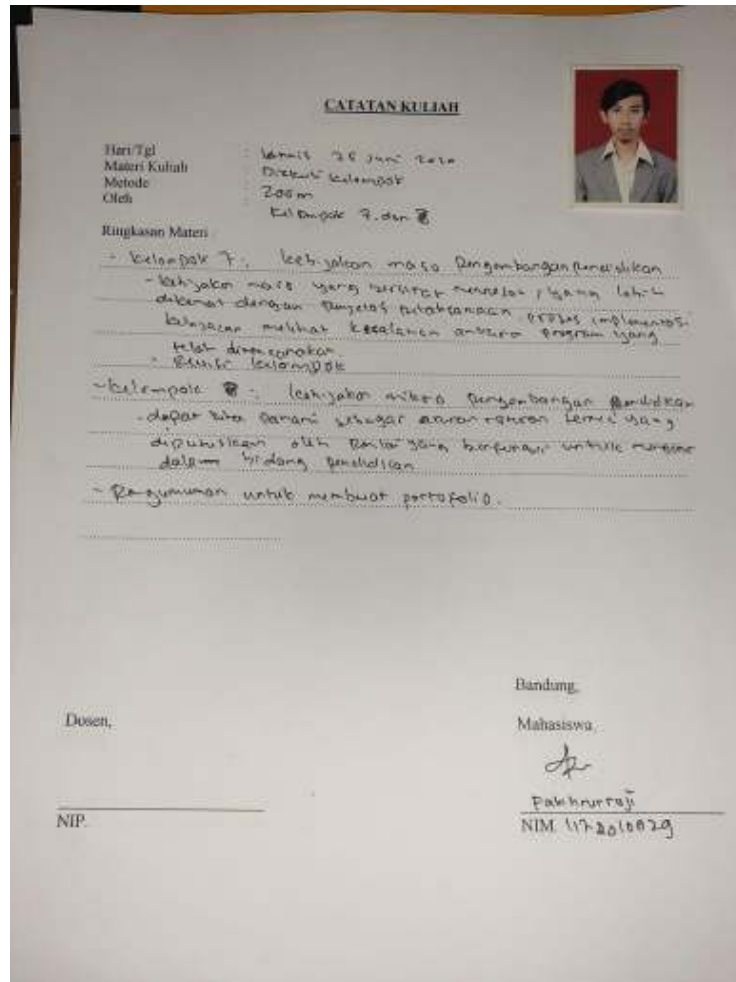 CATATAN KULIAH
Hari/Tgl : Kamis 25 Juni 2020
Materi Kuliah : Diskusi kelompok
Metode : Zoom
Oleh : Kelompok 7. dan 8
Ringkasan Materi :
- Kelompok 7 : kebijakan Pengembangan Pendidikan
- kebijakan yang bersifat yang lebih
dikenal dengan pelaksanaan proses implementasi
melihat antara program yang
telah direncanakan.
- kelompok
- kelompok 8 : kebijakan mikro Pengembangan Pendidikan
- dapat kita sebagai yang
diputuskan oleh yang berfungsi untuk
dalam bidang pendidikan
- Pengumuman untuk membuat portofolio.
Bandung,
Dosen,
Mahasiswa,
Pakhrurroji
NIP.
NIM. 1172010029